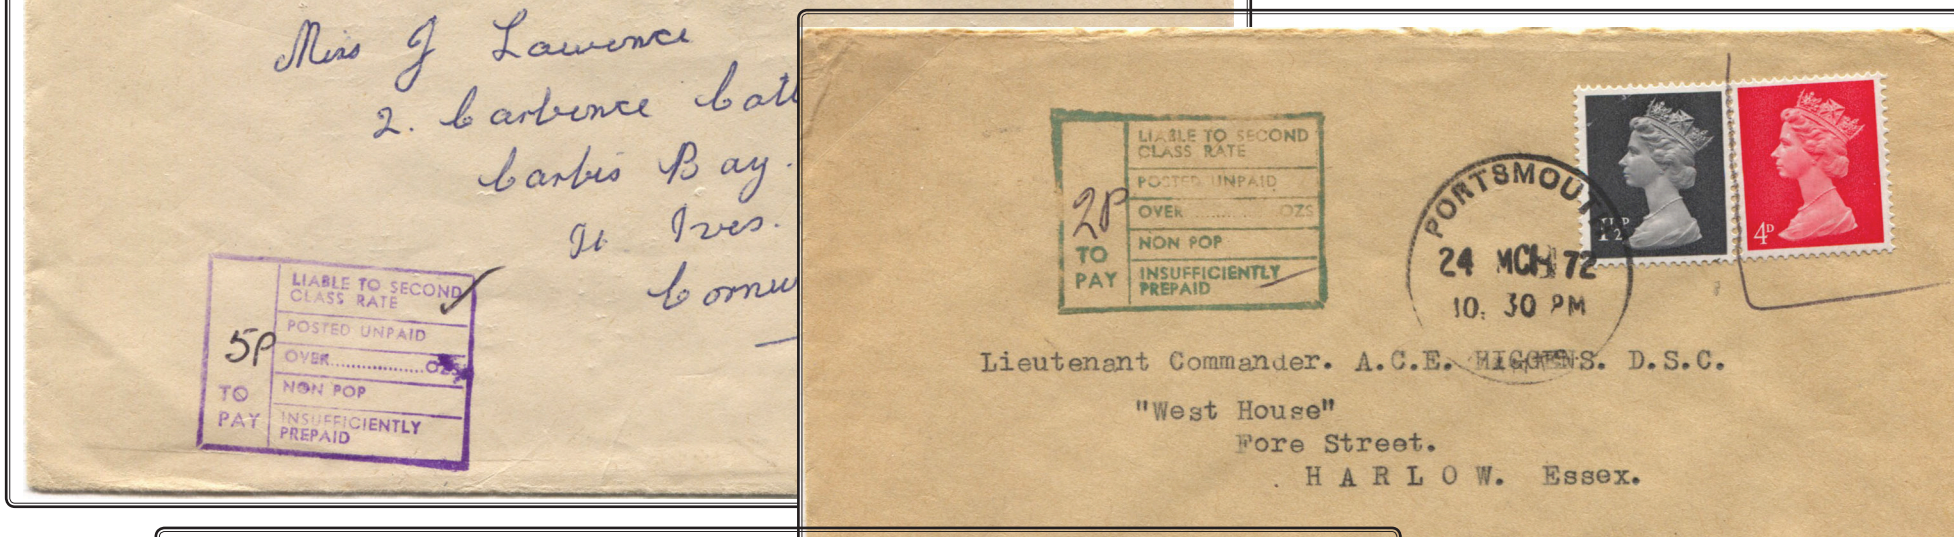 Miss J Lawrence
2. Carbence Cott
Carbis Bay.
St Ives.
Cornw
LIABLE TO SECOND
CLASS RATE
POSTED UNPAID
OVER..................OZS
NON POP
INSUFFICIENTLY
PREPAID
5P
TO
PAY
LIABLE TO SECOND
CLASS RATE
POSTED UNPAID
OVER..............OZS
NON POP
INSUFFICIENTLY
PREPAID
2P
TO
PAY
PORTSMOUT
24 MCH 72
10. 30 PM
1½P
4D
Lieutenant Commander. A.C.E. HIGGENS. D.S.C.
"West House"
Fore Street.
H A R L O W. Essex.